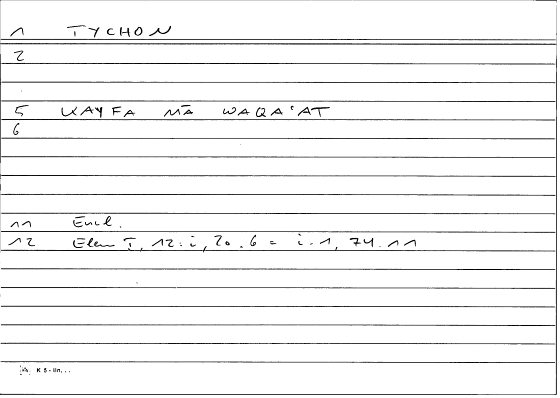 1 TYCHON
2
5 KAYFA MĀ WAQAʿAT
6
11 Eucl.
12 Elem I, 12: i, 20.6 = i.1, 74.11
K 5 -